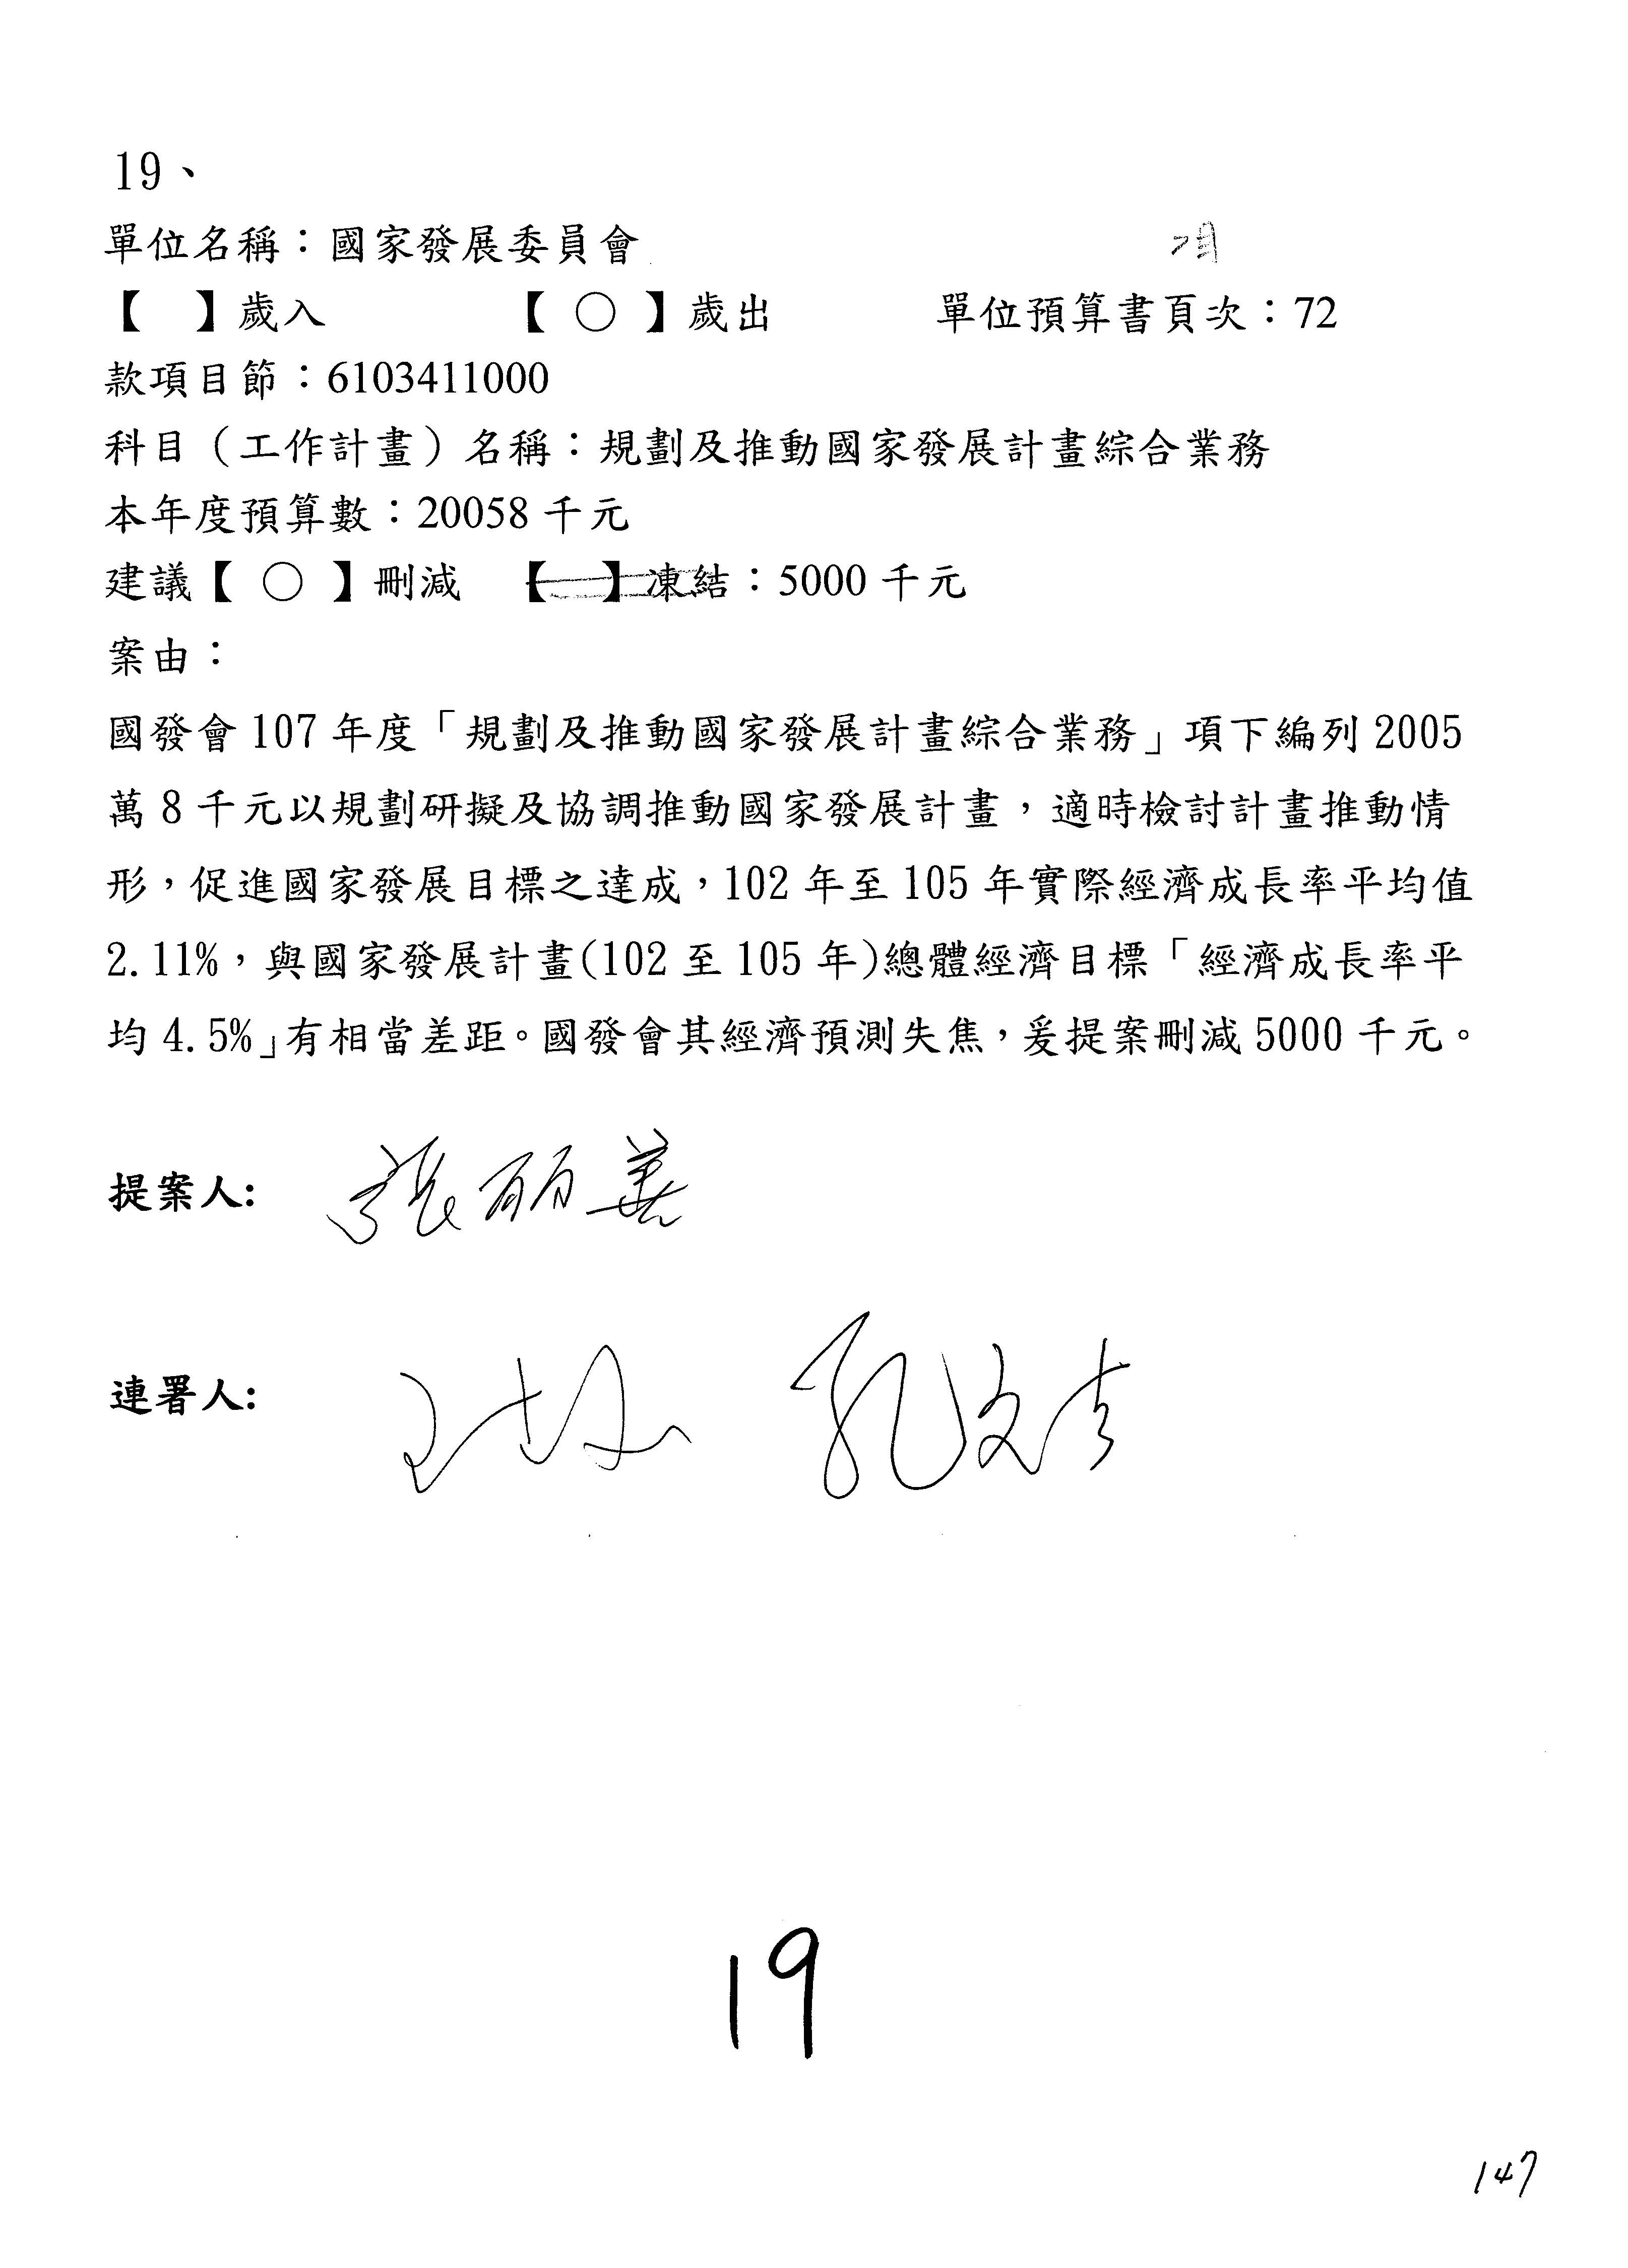 19、
單位名稱：國家發展委員會
【　】歲入　【 ○ 】歲出　單位預算書頁次：72
款項目節：6103411000
科目（工作計畫）名稱：規劃及推動國家發展計畫綜合業務
本年度預算數：20058 千元
建議【 ○ 】刪減　【　】凍結：5000 千元
案由：
國發會 107 年度「規劃及推動國家發展計畫綜合業務」項下編列 2005
萬 8 千元以規劃研擬及協調推動國家發展計畫，適時檢討計畫推動情
形，促進國家發展目標之達成，102 年至 105 年實際經濟成長率平均值
2.11%，與國家發展計畫(102 至 105 年)總體經濟目標「經濟成長率平
均 4.5%」有相當差距。國發會其經濟預測失焦，爰提案刪減 5000 千元。
提案人: 張麗善
連署人: 孔文吉
19
147